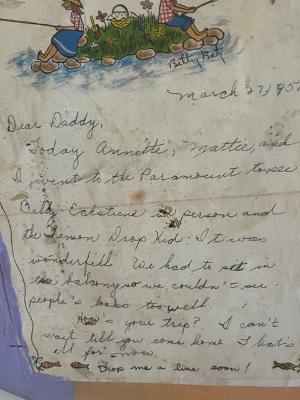 Betty Bet
March 27, 195
Dear Daddy,
Today Annette, Mattie, and
I went to the Paramount to see
Billy Eckstine in person and
the Lemon Drop Kid. It was
wonderfull. We had to sit in
the balcony so we couldn't see
people's too well
How's your trip? I can't
wait tell you come home. That's
all for now.
Drop me a line soon!